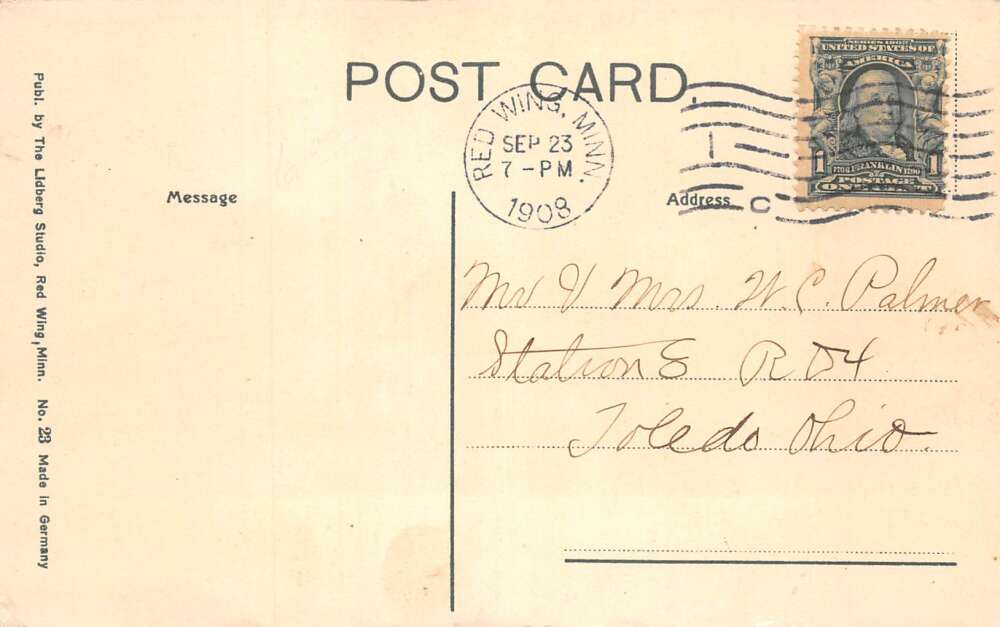 POST CARD.
RED WING, MINN.
SEP 23
7 - PM
1908
SERIES 1902
UNITED STATES OF
AMERICA
1 FRANKLIN 1
POSTAGE
ONE CENT
Message
Address
C
Mr & Mrs. W. C. Palmer
Station E R D 4
Toledo Ohio.
Publ. by The Lidberg Studio, Red Wing, Minn. No. 23 Made in Germany